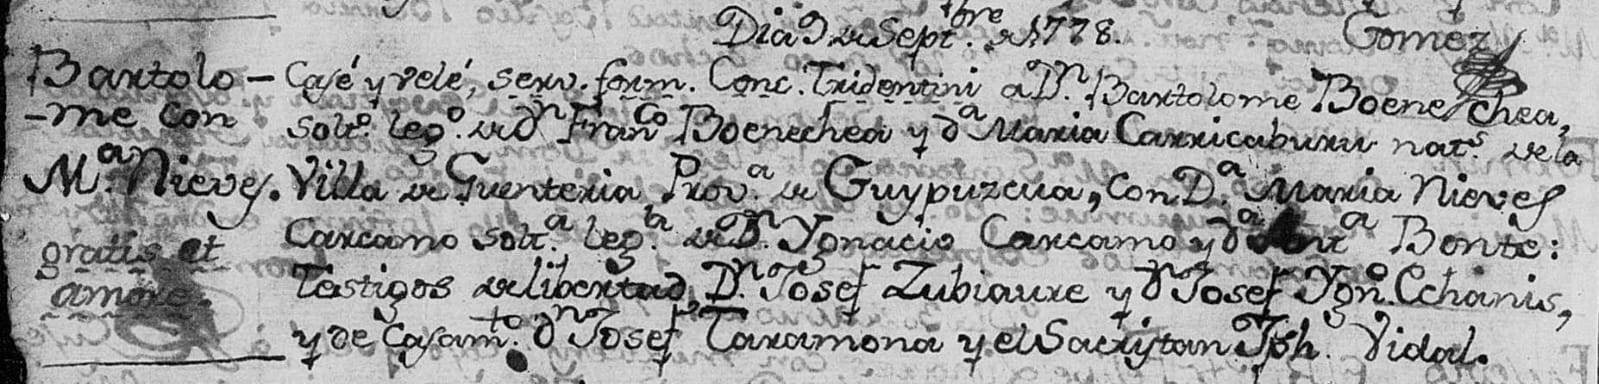 Dia 9 de Septbre de 1778. Gomez
Bartolo- Casé y velé, serv. form. Conc. Tridentini a Dn Bartolome Boenechea,
-me con solto. lego. de dn Franco Boenechea y da Maria Carricaburu nats. de la
Ma. Nieves. Villa de Guenteria Prova. de Guypuzcua, con Da. Maria Nieves
Carcamo solta. lega. de Dn. Ygnacio Carcamo y da Anta Bonte:
gratis et
Testigos de libertad, Dn. Josef Zubiaure y dn Josef Ygno. Echanis,
amore.
y de Casamto. dn Josef Taramona y el Sacristan Jph. Vidal.